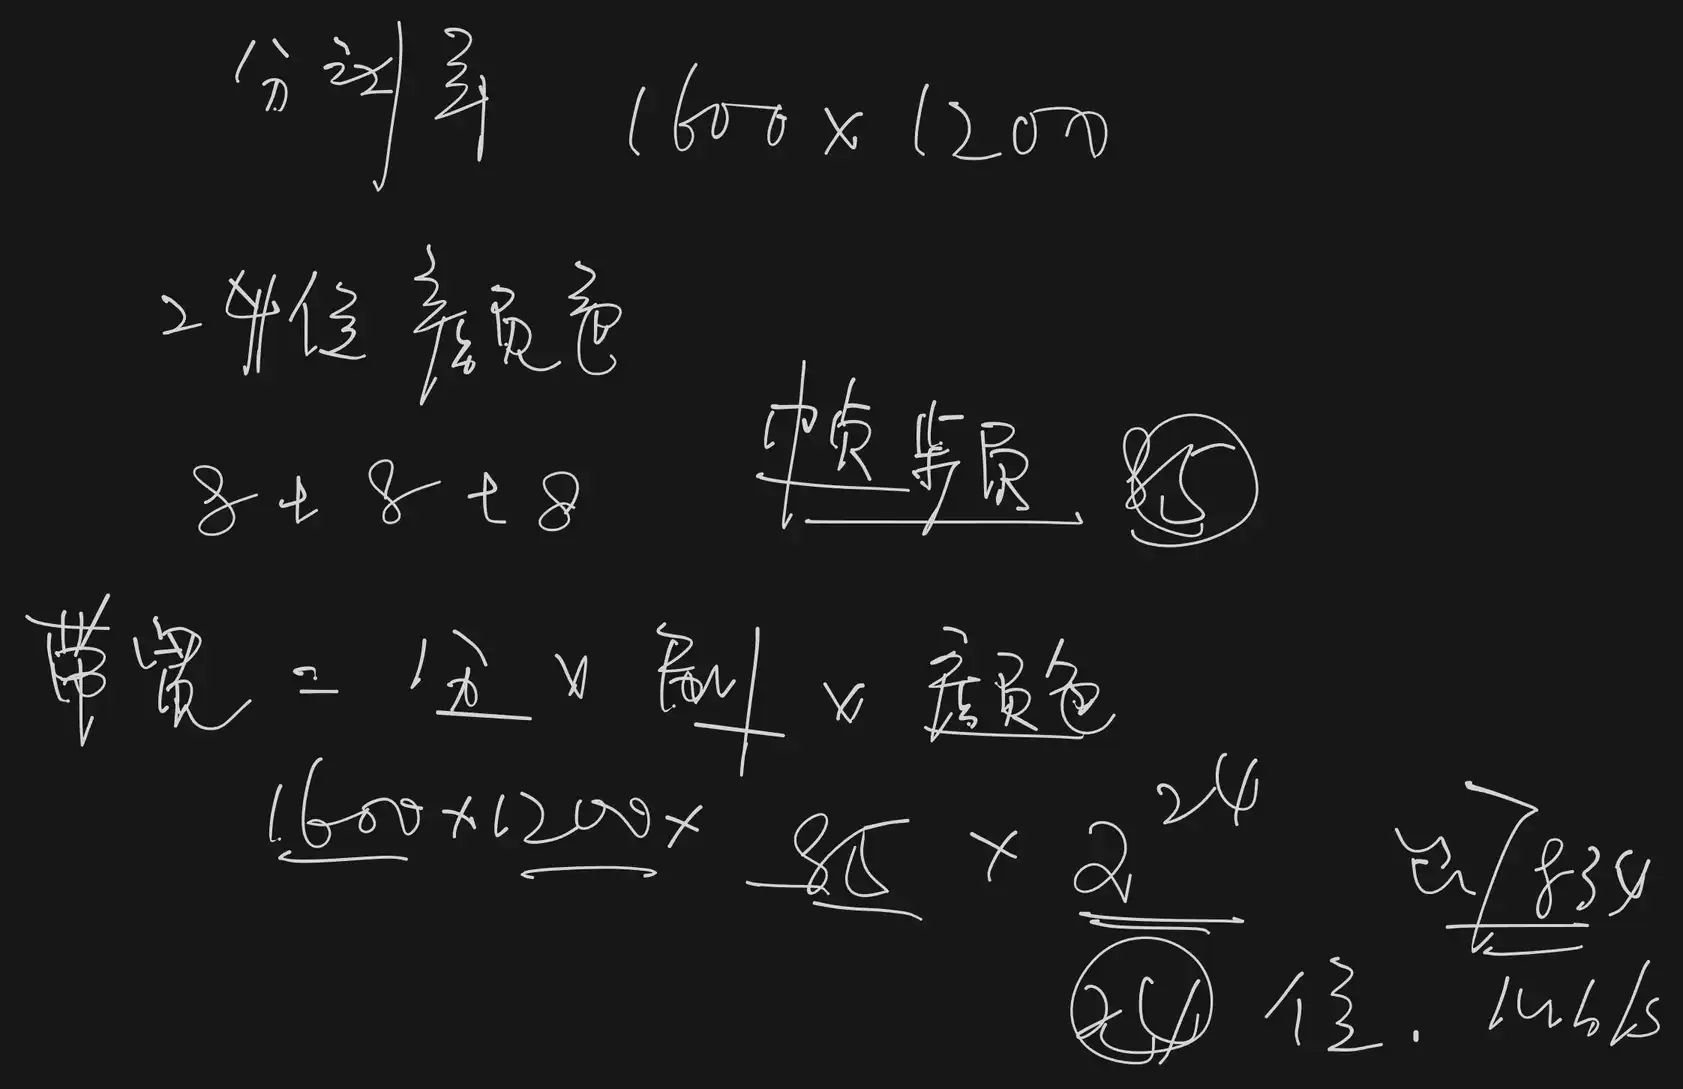 分辨率 1600 × 1200
24位 颜色
8 + 8 + 8 帧频 85
带宽 = 分 × 刷 × 颜色
1600 × 1200 × 85 × 2^24
24 位. 7834
Mb/s